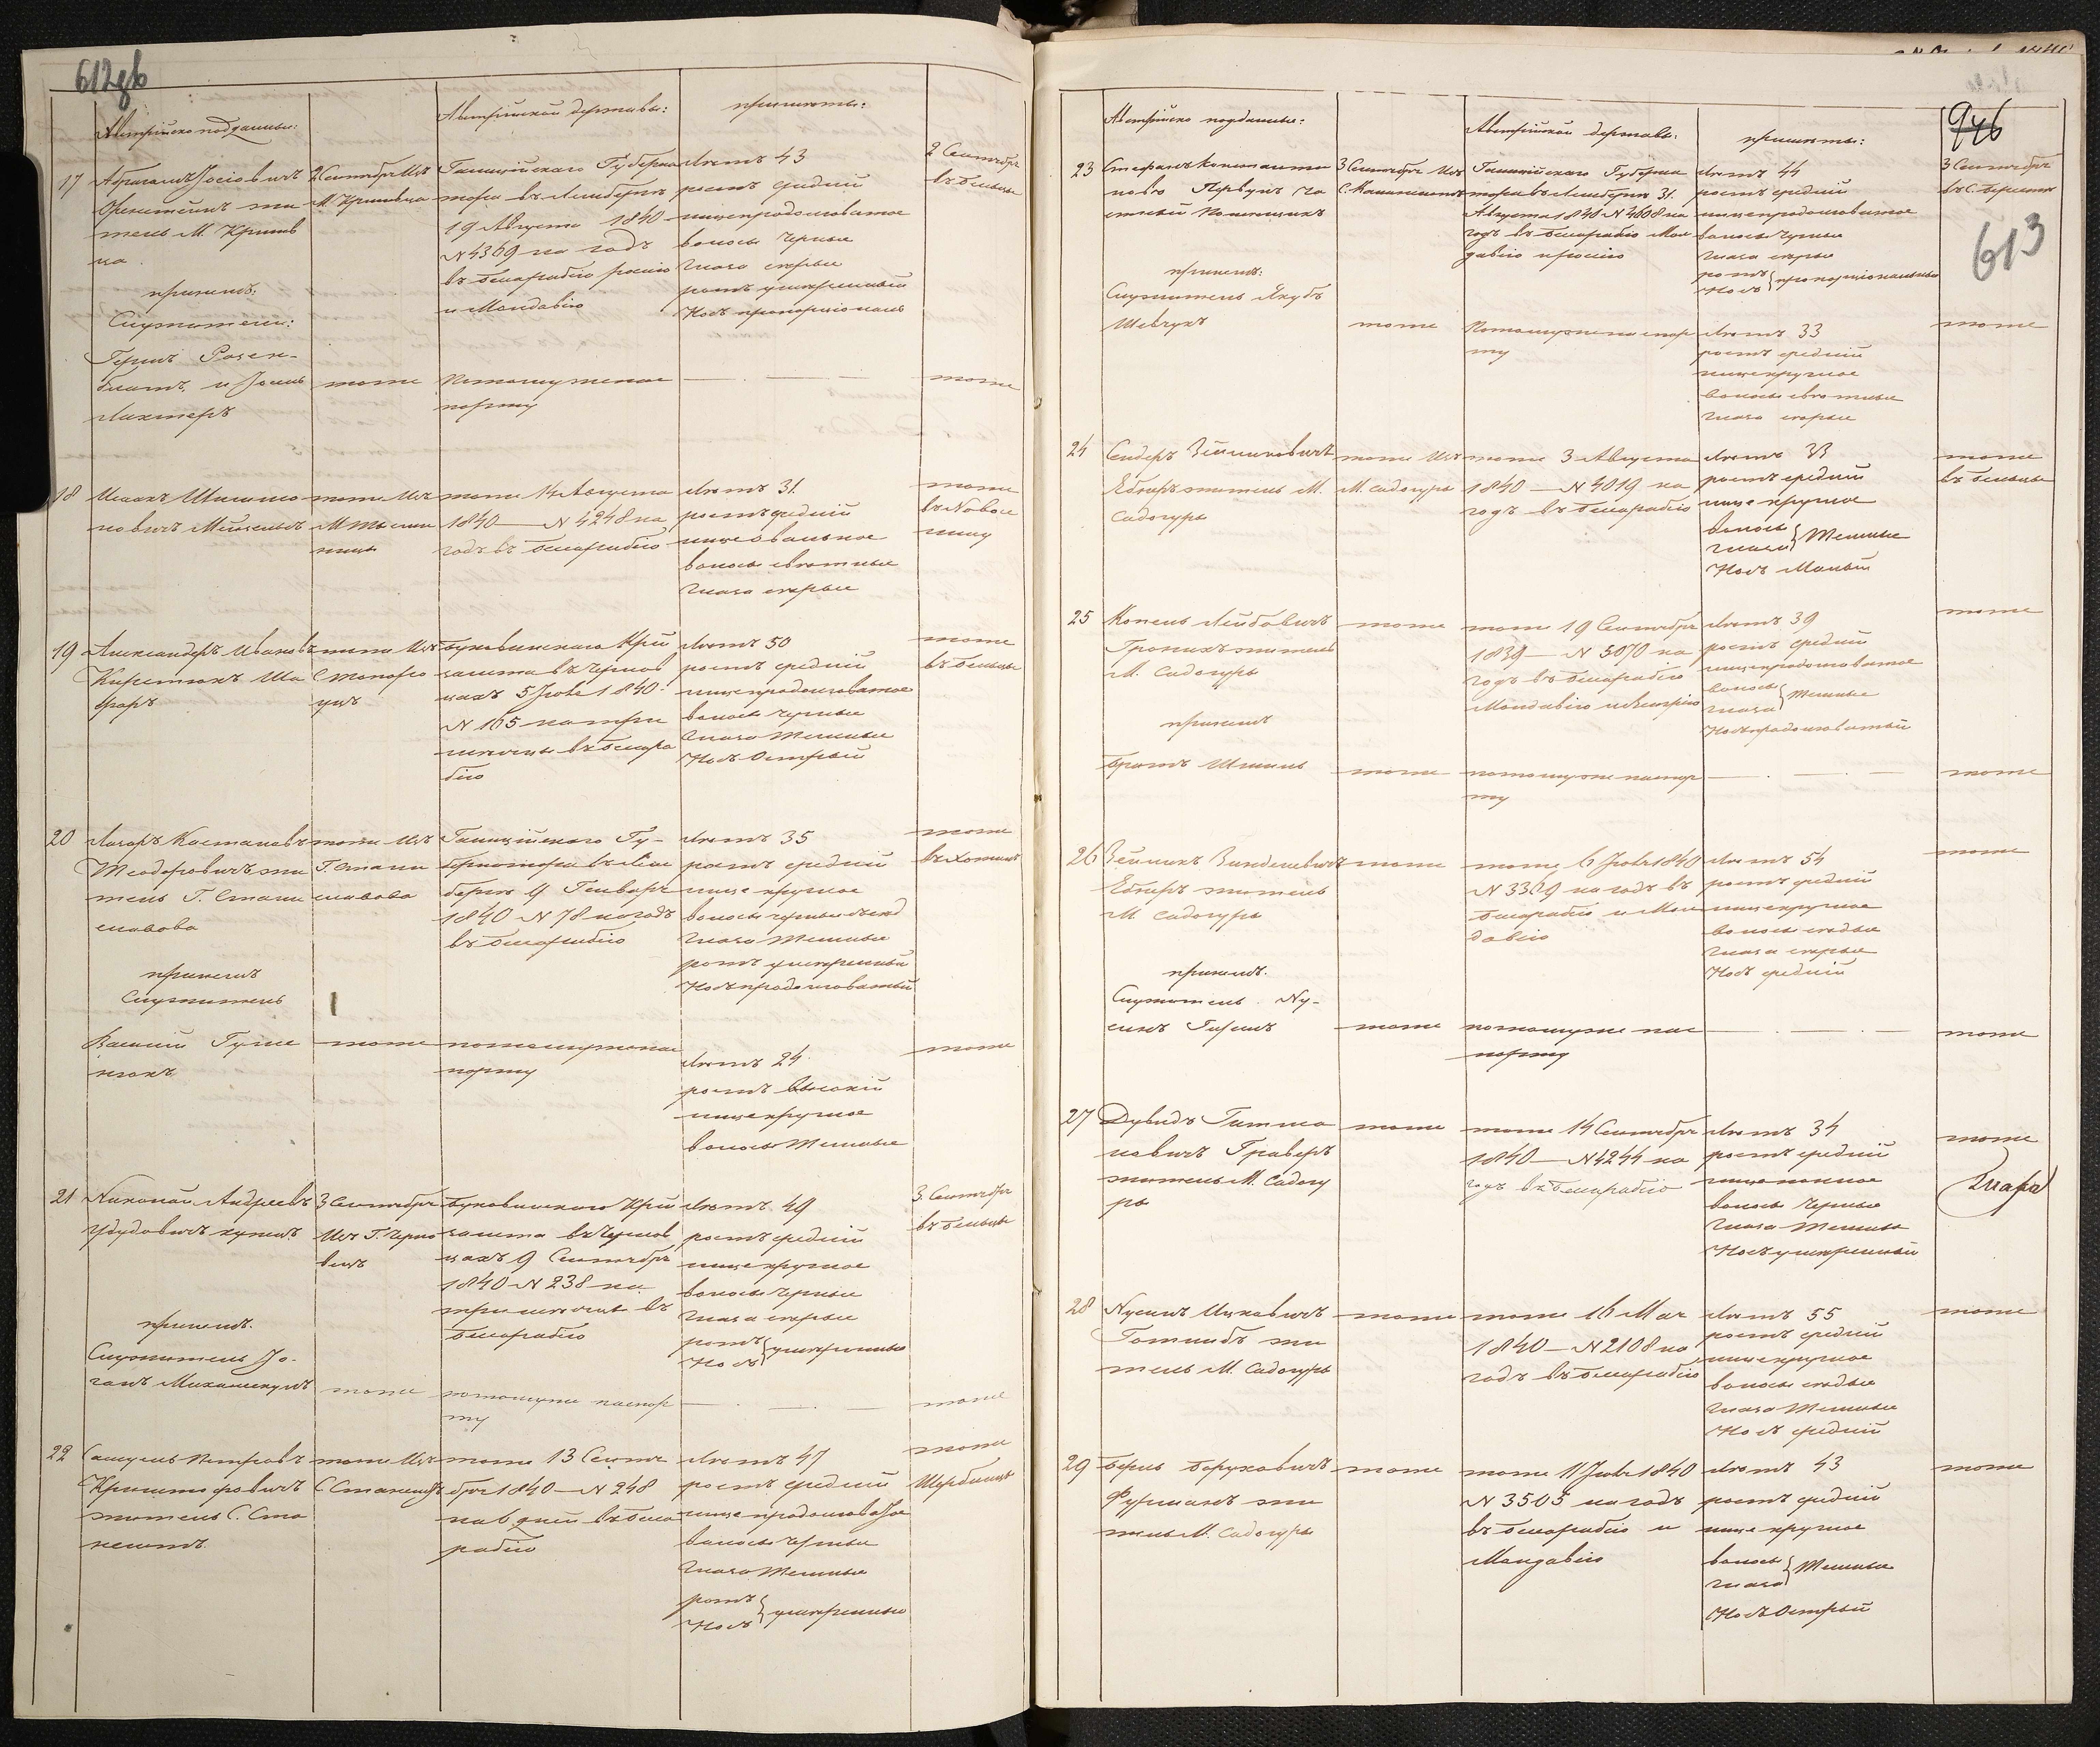 612об
Австрійско подданные:
Австрійской державы:
приметы:
17
Абрагамъ Іосіовичъ
Оренштейнъ жи
тель М. Кривъ
ча
2 Сентября Изъ
М. Кривча
Галиційского Губерна
тора въ Лемберге
19 Августа 1840
N 4369 на годъ
въ Бесарабію россію
и Молдавію
Летъ 43
ростъ средній
лице продолговатое
волосы черные
глаза серые
ротъ умеренный
Носъ пропорціональ
2 Сентября
въ Бельцы
при немъ:
Служители:
Гершъ Розен-
блатъ и Іосель
Лихтеръ
тоже
Потомуже пас
порту
тоже
18
новичъ
тоже Изъ
М. Тысмени
ницы
тоже 14 Августа
1840 — N 4248 на
годъ въ Бесарабію
Летъ 31.
ростъ средній
лице Овальное
волосы светлые
глаза серые
тоже
въ Новосе
лицу
19
Александеръ Ивановъ
тоже Изъ
Буковинского Крей
замта въ Чернов
цахъ 5 Іюля 1840
N 165 на три
месяцы въ Бесара
бію
Летъ 50
ростъ средній
лице продолговатое
волосы черные
глаза темные
Носъ Острый
тоже
въ Бельцы
20
Лазаръ Костановъ
Теодоровичъ жи
тель Г. Стани
славова
тоже Изъ
Г. Стани
славова
Галиційского Гу-
бернатора въ Лем
берге 9 Генваря
1840 N 78 на годъ
въ Бесарабію
Летъ 35
ростъ средній
лице круглое
волосы черные
глаза темные
ротъ умеренный
Носъ продолговатый
тоже
въ Хотинъ
при немъ
Служитель
Василій
тоже
потомуже пас
порту
Летъ 24
ростъ Высокій
лице круглое
волосы темные
тоже
21
Николай Андреевъ
3 Сентября
Изъ Г. Черно
вицъ
Буковинского Крей
замта въ Чернов
цахъ 9 Сентября
1840 N 238 на
три месяцы въ
Бесарабію
Летъ 49
ростъ средній
лице круглое
волосы черные
глаза серые
ротъ
Носъ } умеренные
3. Сентября
въ Бельцы
при немъ.
Служитель Іо-
ганъ
тоже
потомуже паспор
ту
тоже
22
Самуель Петровъ
Криштофовичъ
житель С. Ста
нешты
тоже Изъ
тоже 13 Сентя
бря 1840 — N 248
на 6 дней въ Беса
рабію
Летъ 47
ростъ средній
лице продолговатое
волосы черные
глаза темные
ротъ
Носъ } умеренные
тоже
Щербинцы
946
613
Австрійско подданные:
Австрійской державы:
приметы:
23
Стефанъ Константи
новъ
помещикъ
3 Сентября Изъ
Галиційского Губерна
тора въ Лемберге 31.
Августа 1840 N 4608 на
годъ въ Бесарабію Мол
давію и россію
Летъ 44
ростъ средній
лице продолговатое
волосы черные
глаза серые
ротъ
Носъ } пропорціональные
3 Сентября
при немъ:
Служитель Якубъ
Шевчукъ
тоже
Потомуже паспор
ту
Летъ 33
ростъ средній
лице круглое
волосы светлые
глаза серые
тоже
24
Сендеръ Зейликовичъ
Ебнеръ житель М.
Садогуры
тоже Изъ
М. Садогуры
тоже 3 Августа
1840 — N 4019 на
годъ въ Бесарабію
Летъ 33
ростъ средній
лице круглое
волосы
глаза } Темные
Носъ Малый
тоже
въ Бельцы
25
Копель Лейбовичъ
житель
М. Садогуры
тоже
тоже 19 Сентября
1839 — N 5070 на
годъ въ Бесарабію
Молдавію и Венгрію
Летъ 39
ростъ средній
лице продолговатое
волосы
глаза } Темные
Носъ продолговатый
тоже
при немъ
братъ Шмиль
тоже
потомуже паспор
ту
тоже
26
Зейликъ Зинделевичъ
Ебнеръ житель
М. Садогуры
тоже
тоже 6 Іюля 1840
N 3369 на годъ въ
Бесарабію и Мол
давію
Летъ 54
ростъ средній
лице круглое
волосы седые
глаза серые
Носъ средній
тоже
при немъ.
Служитель Ну-
синъ Гиршъ
тоже
потомуже пас
порту
тоже
27
Дувидъ Гитма
новичъ Граверъ
житель М. Садогу
ры
тоже
тоже 14 Сентября
1840 — N 4244 на
годъ въ Бесарабію
Летъ 34
ростъ средній
лице полное
волосы Черные
глаза темные
Носъ умеренный
тоже
28
Нусинъ Ицковичъ
Готлибъ жи
тель М. Садогуры
тоже
тоже 16 Мая
1840 — N 2108 на
годъ въ Бесарабію
Летъ 55
ростъ средній
лице круглое
волосы седые
глаза Темные
Носъ средній
тоже
29
Берль Боруховичъ
Фурманъ жи
тель М. Садогуры
тоже
тоже 11 Іюля 1840
N 3505 на годъ
въ Бесарабію и
Молдавію
Летъ 43
ростъ средній
лице круглое
волосы
глаза } Темные
Носъ Острый
тоже